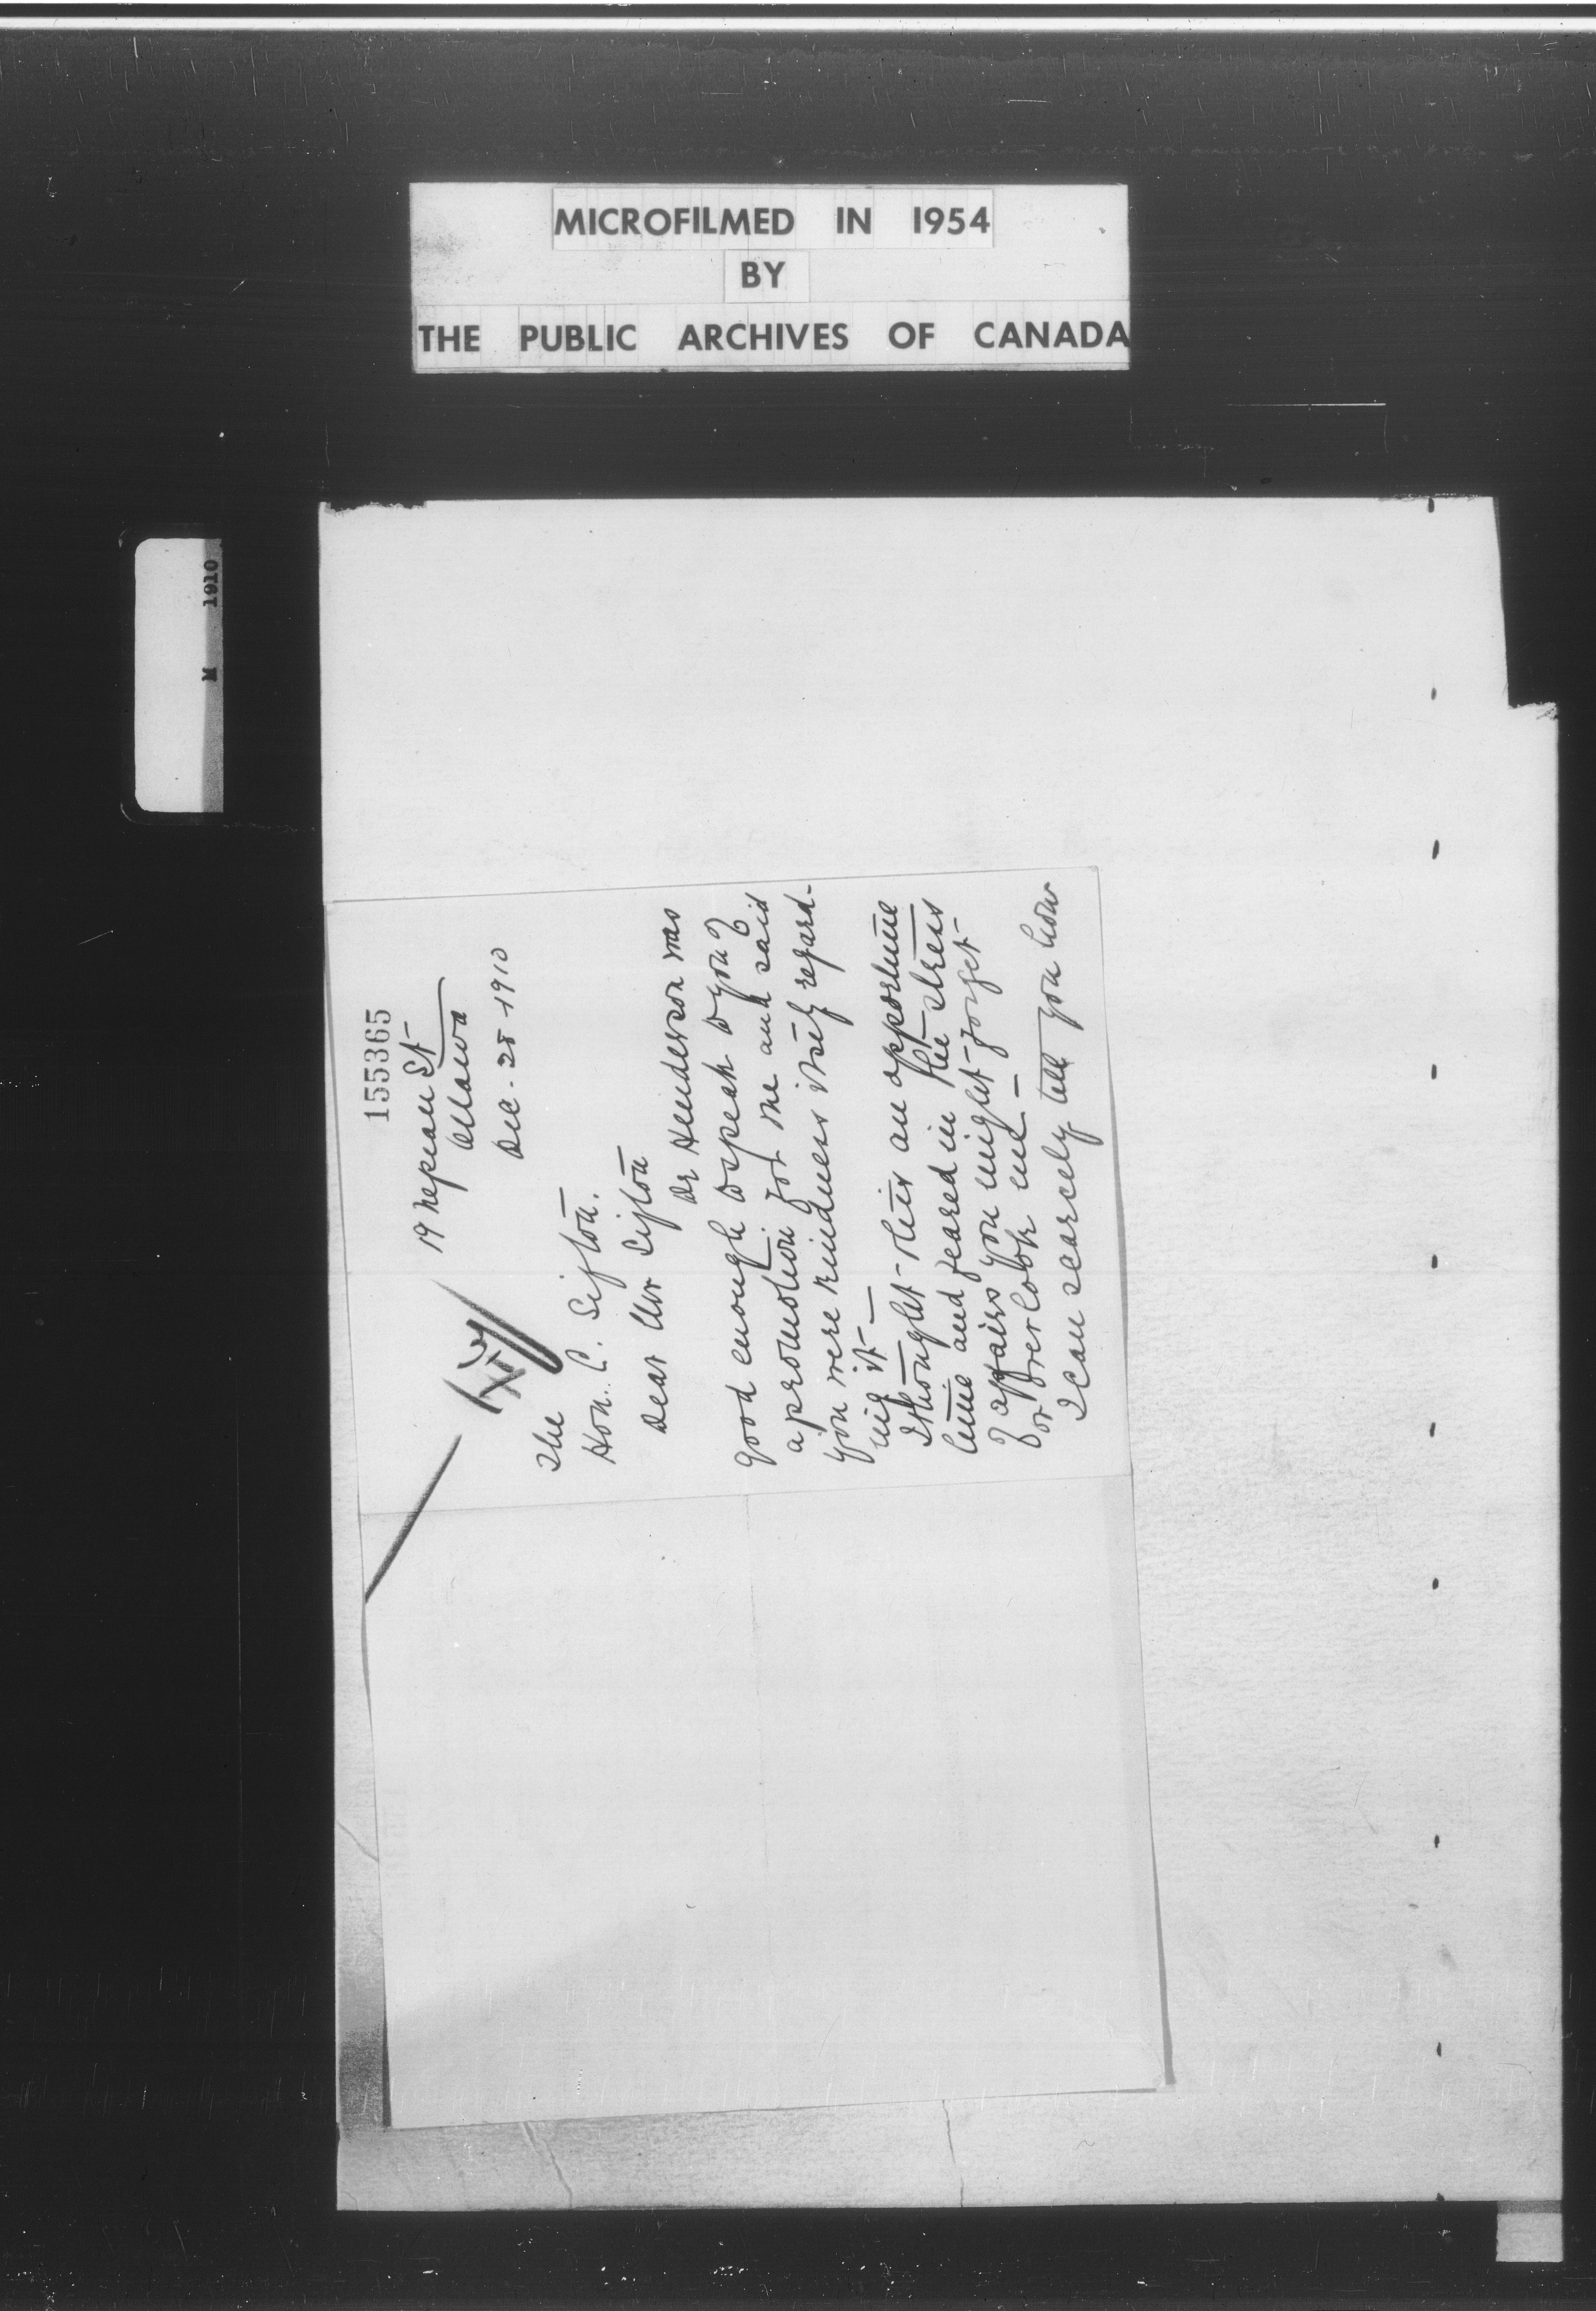 MICROFILMED IN 1954
BY
THE PUBLIC ARCHIVES OF CANADA
M 1910
155365
19 Nepean St
Ottawa
Dec. 28 1910
The
Hon. C. Sifton.
Dear Mr Sifton
Dr Henderson was
good enough to speak to you of
a promotion for me and said
you were kindness itself regard-
ing it -
I thought this an opportune
time and feared in the stress
of affairs you might forget
or overlook me -
I can scarcely tell you how